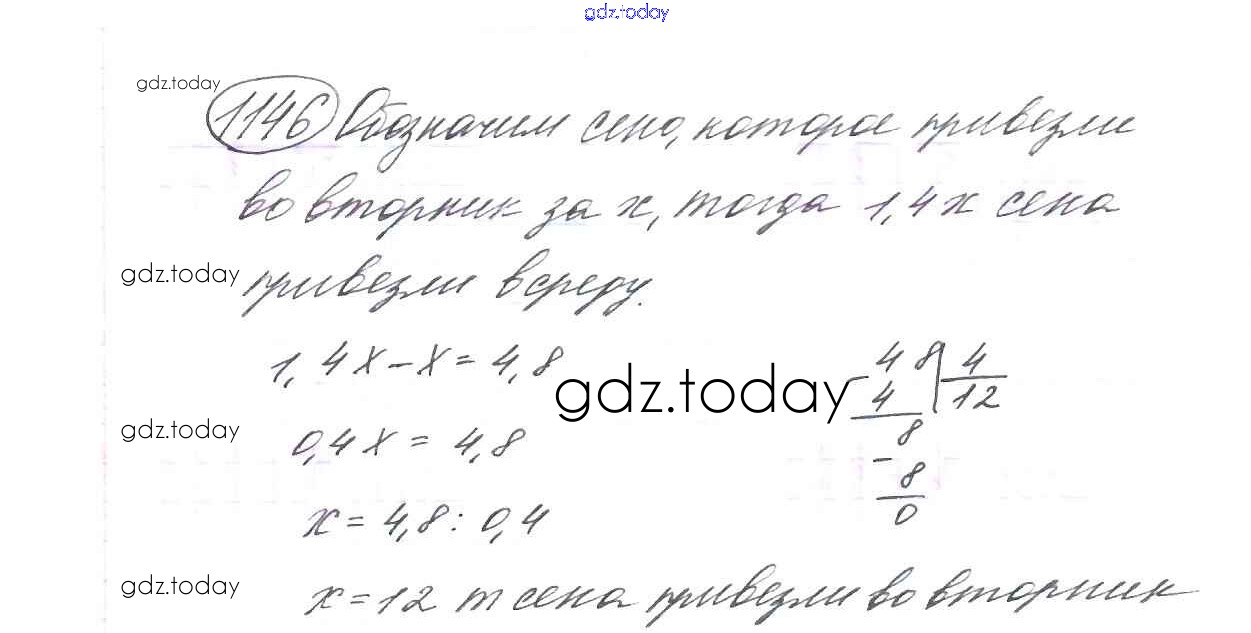 gdz.today
gdz.today
1146 Обозначим сено, которое привезли
во вторник за x, тогда 1,4x сена
gdz.today
привезли в среду.
1,4x - x = 4,8
gdz.today
48 | 4
- 4
12
8
- 8
0
gdz.today
0,4x = 4,8
x = 4,8 : 0,4
gdz.today
x = 12 т сена привезли во вторник